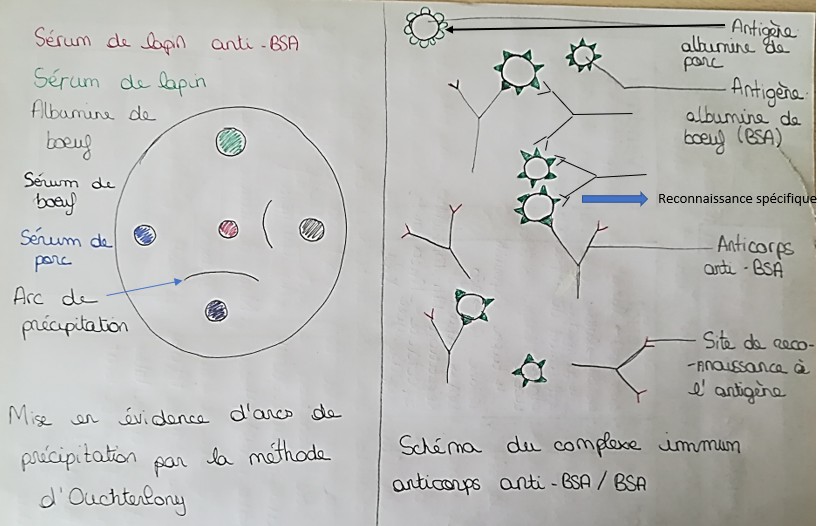 Sérum de lapin anti-BSA
Sérum de lapin
Albumine de
boeuf
Sérum de
boeuf
Sérum de
porc
Arc de
précipitation
Mise en évidence d'arcs de
précipitation par la méthode
d'Ouchterlony
Antigène
albumine de
porc
Antigène
albumine de
boeuf (BSA)
Reconnaissance spécifique
Anticorps
anti-BSA
Site de reco-
-nnaissance à
l'antigène
Schéma du complexe immum
anticorps anti-BSA/BSA